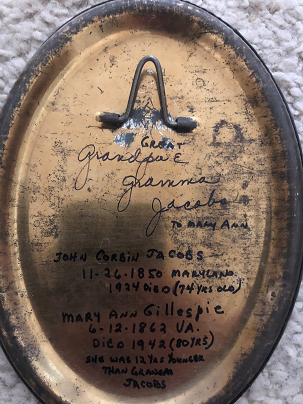 GREAT
Grandpa &
Gramma
Jacobs
TO MARY ANN
JOHN CORBIN JACOBS
11-26-1850 MARYLAND
1924 DIED (74 YRS OLD)
MARY ANN GILLESPIE
6-12-1862 VA.
DIED 1942 (80 YRS)
SHE WAS 12 YRS YOUNGER
THAN GRANDPA
JACOBS